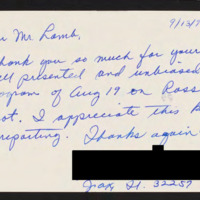 9/13/9
Mr. Lamb,
hank you so much for your
ll presented and unbiased
ogram of Aug 19 on Ross
ot. I appreciate this
reporting. Thanks again
Jax Fl. 32257